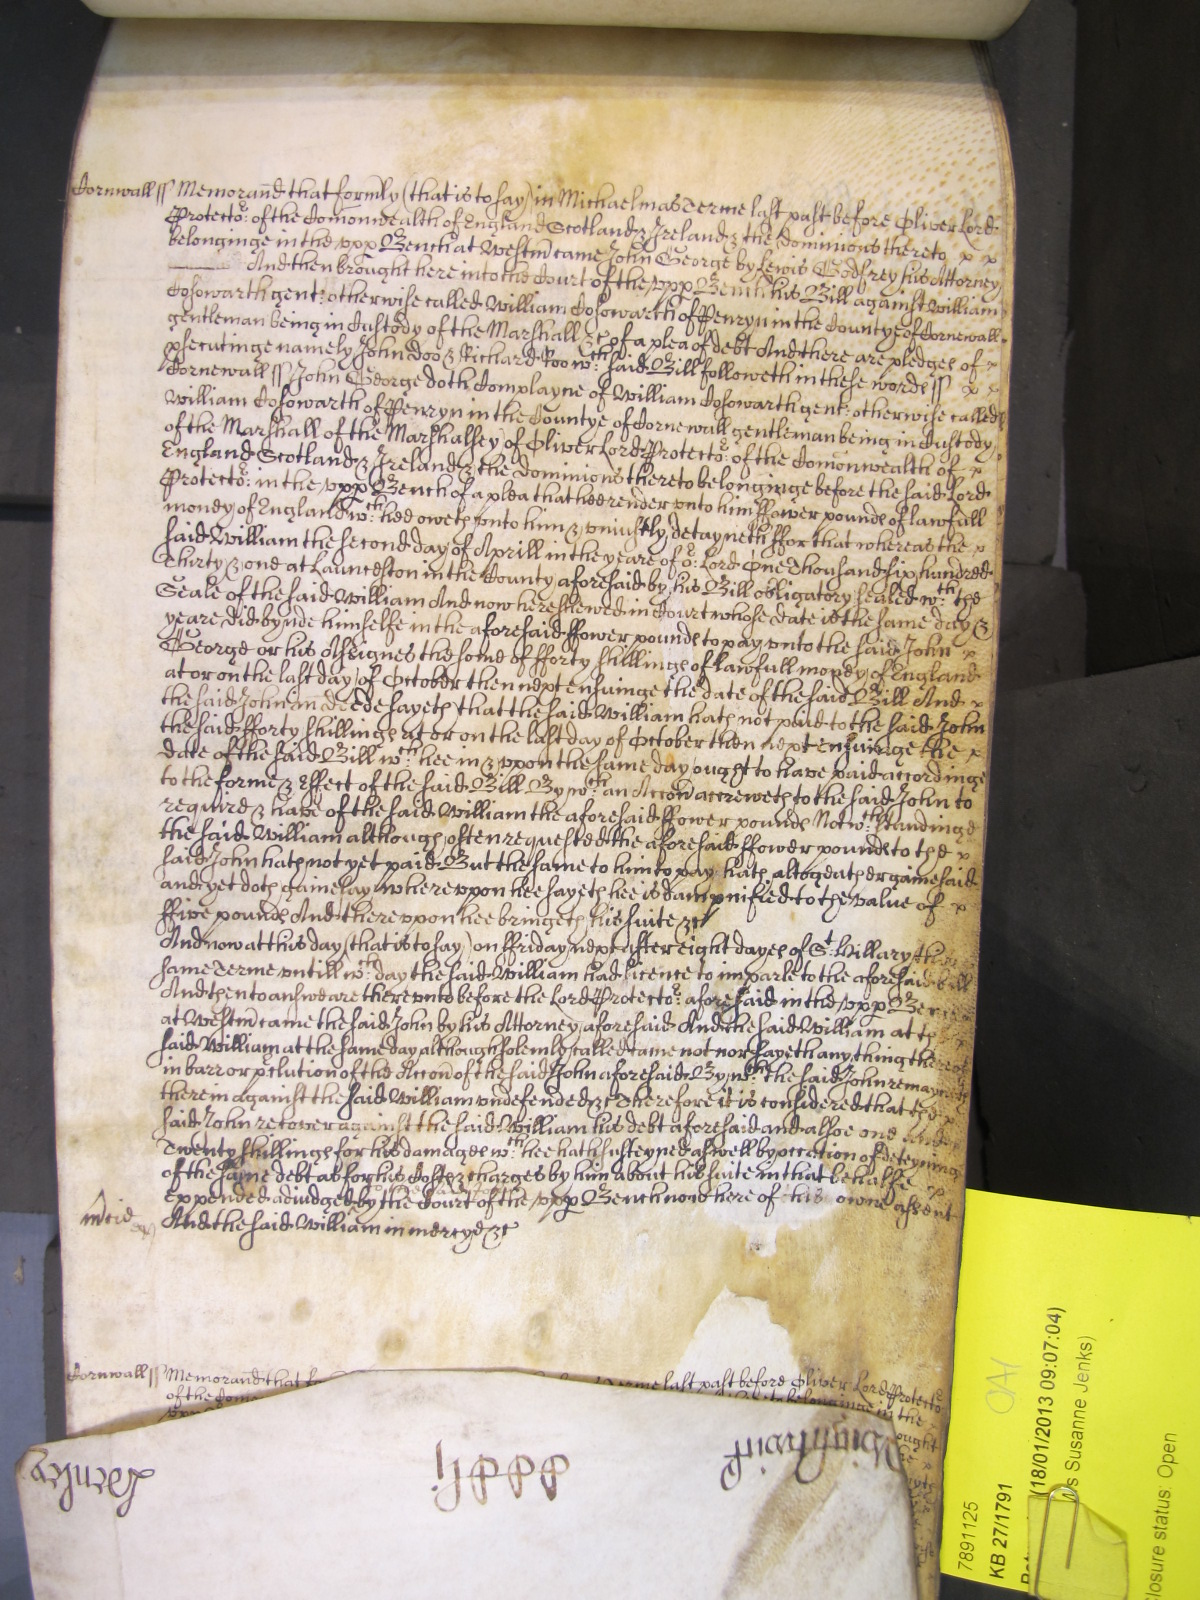 Cornwall ss Memorand that formly (that is to say) in Michaelmas Terme last past before Oliver Lord
Protector: of the Comonwealth of England Scotland & Ireland & the Dominions thereto x x
belonginge in the upp Bench at Westm came John George by Lewis Godfrey his Attorney
And then brought here into the Court of the upp Bench his Bill against William
Cosowarth gent: otherwise called William Cosowarth of Penryn in the Countye of Cornewall
gentleman being in Custody of the Marshall &c of a plea of debt And there are pledges of x
psecutinge namely John Doo & Richard Roo wch said Bill followeth in these words ss x x
Cornewall ss John George doth Complayne of William Cosowarth gent: otherwise called
William Cosowarth of Penryn in the Countye of Cornewall gentleman being in Custody
of the Marshall of the Marshalsey of Oliver Lord Protector: of the Comonwealth of x
England Scotland & Ireland & the Dominions thereto belonginge before the said Lord
Protector: in the upp Bench of a plea that hee render unto him ffower pounds of lawfull
money of England wch hee oweth unto him & uniustly detayneth ffor that whereas the x
said William the second day of Aprill in the yeare of or Lord One Thousand six hundred
Thirty & one at Launceston in the County aforesaid by his Bill obligatory sealed wth the
Seale of the said William And now here shewed in Court whose date is the same day &
yeare did bynde himselfe in the aforesaid ffower pounds to pay unto the said John x
George or his Assignes the some of fforty shillings of lawfull money of England
at or on the last day of October then next ensuinge the date of the said Bill And x
the said John in deede sayeth that the said William hath not paid to the said John
the said fforty shillings at or on the last day of October then next ensuinge the x
date of the said Bill wch hee in & upon the same day ought to have paid accordinge
to the forme & effect of the said Bill By wch an Accon accreweth to the said John to
require & have of the said William the aforesaid ffower pounds Notwthstandinge
the said William although often requested the aforesaid ffower pounds to the x
said John hath not yet paid But the same to him to pay hath altogeather gainesaid
and yet doth gainesay whereuppon hee sayeth hee is dampnified to the value of x
ffive pounds And thereuppon hee bringeth his suite &c
And now at this day (that is to say) on ffriday next after eight dayes of St. Hillary this
same Terme untill wch day the said William had licence to imparle to the aforesaid bill
And then to answeare thereunto before the Lord Protector: aforesaid in the upp Bench
at Westm came the said John by his Attorney aforesaid And the said William at the
said William at the same day although solemly called came not nor sayeth any thing thereof
in barr or pclution of the Accon of the said John aforesaid By wch the said John remayneth
therein against the said William undefended &c Therefore it is considered that the
said John recover against the said William his debt aforesaid and alsoe one
Twenty shillings for his damages wch hee hath susteyned aswell by occation of deteyning
of the same debt as for his Costs & charges by him about his suite in that behalfe x
expended adiudged by the Court of the upp Bench now here of his owne assent
mcie And the said William in mercye &c
Cornwall ss Memorand that Terme last past before Oliver Lord Protector
of the belonginge in the
ought
7891125
KB 27/1791
(18/01/2013 09:07:04)
Susanne Jenks)
losure status: Open